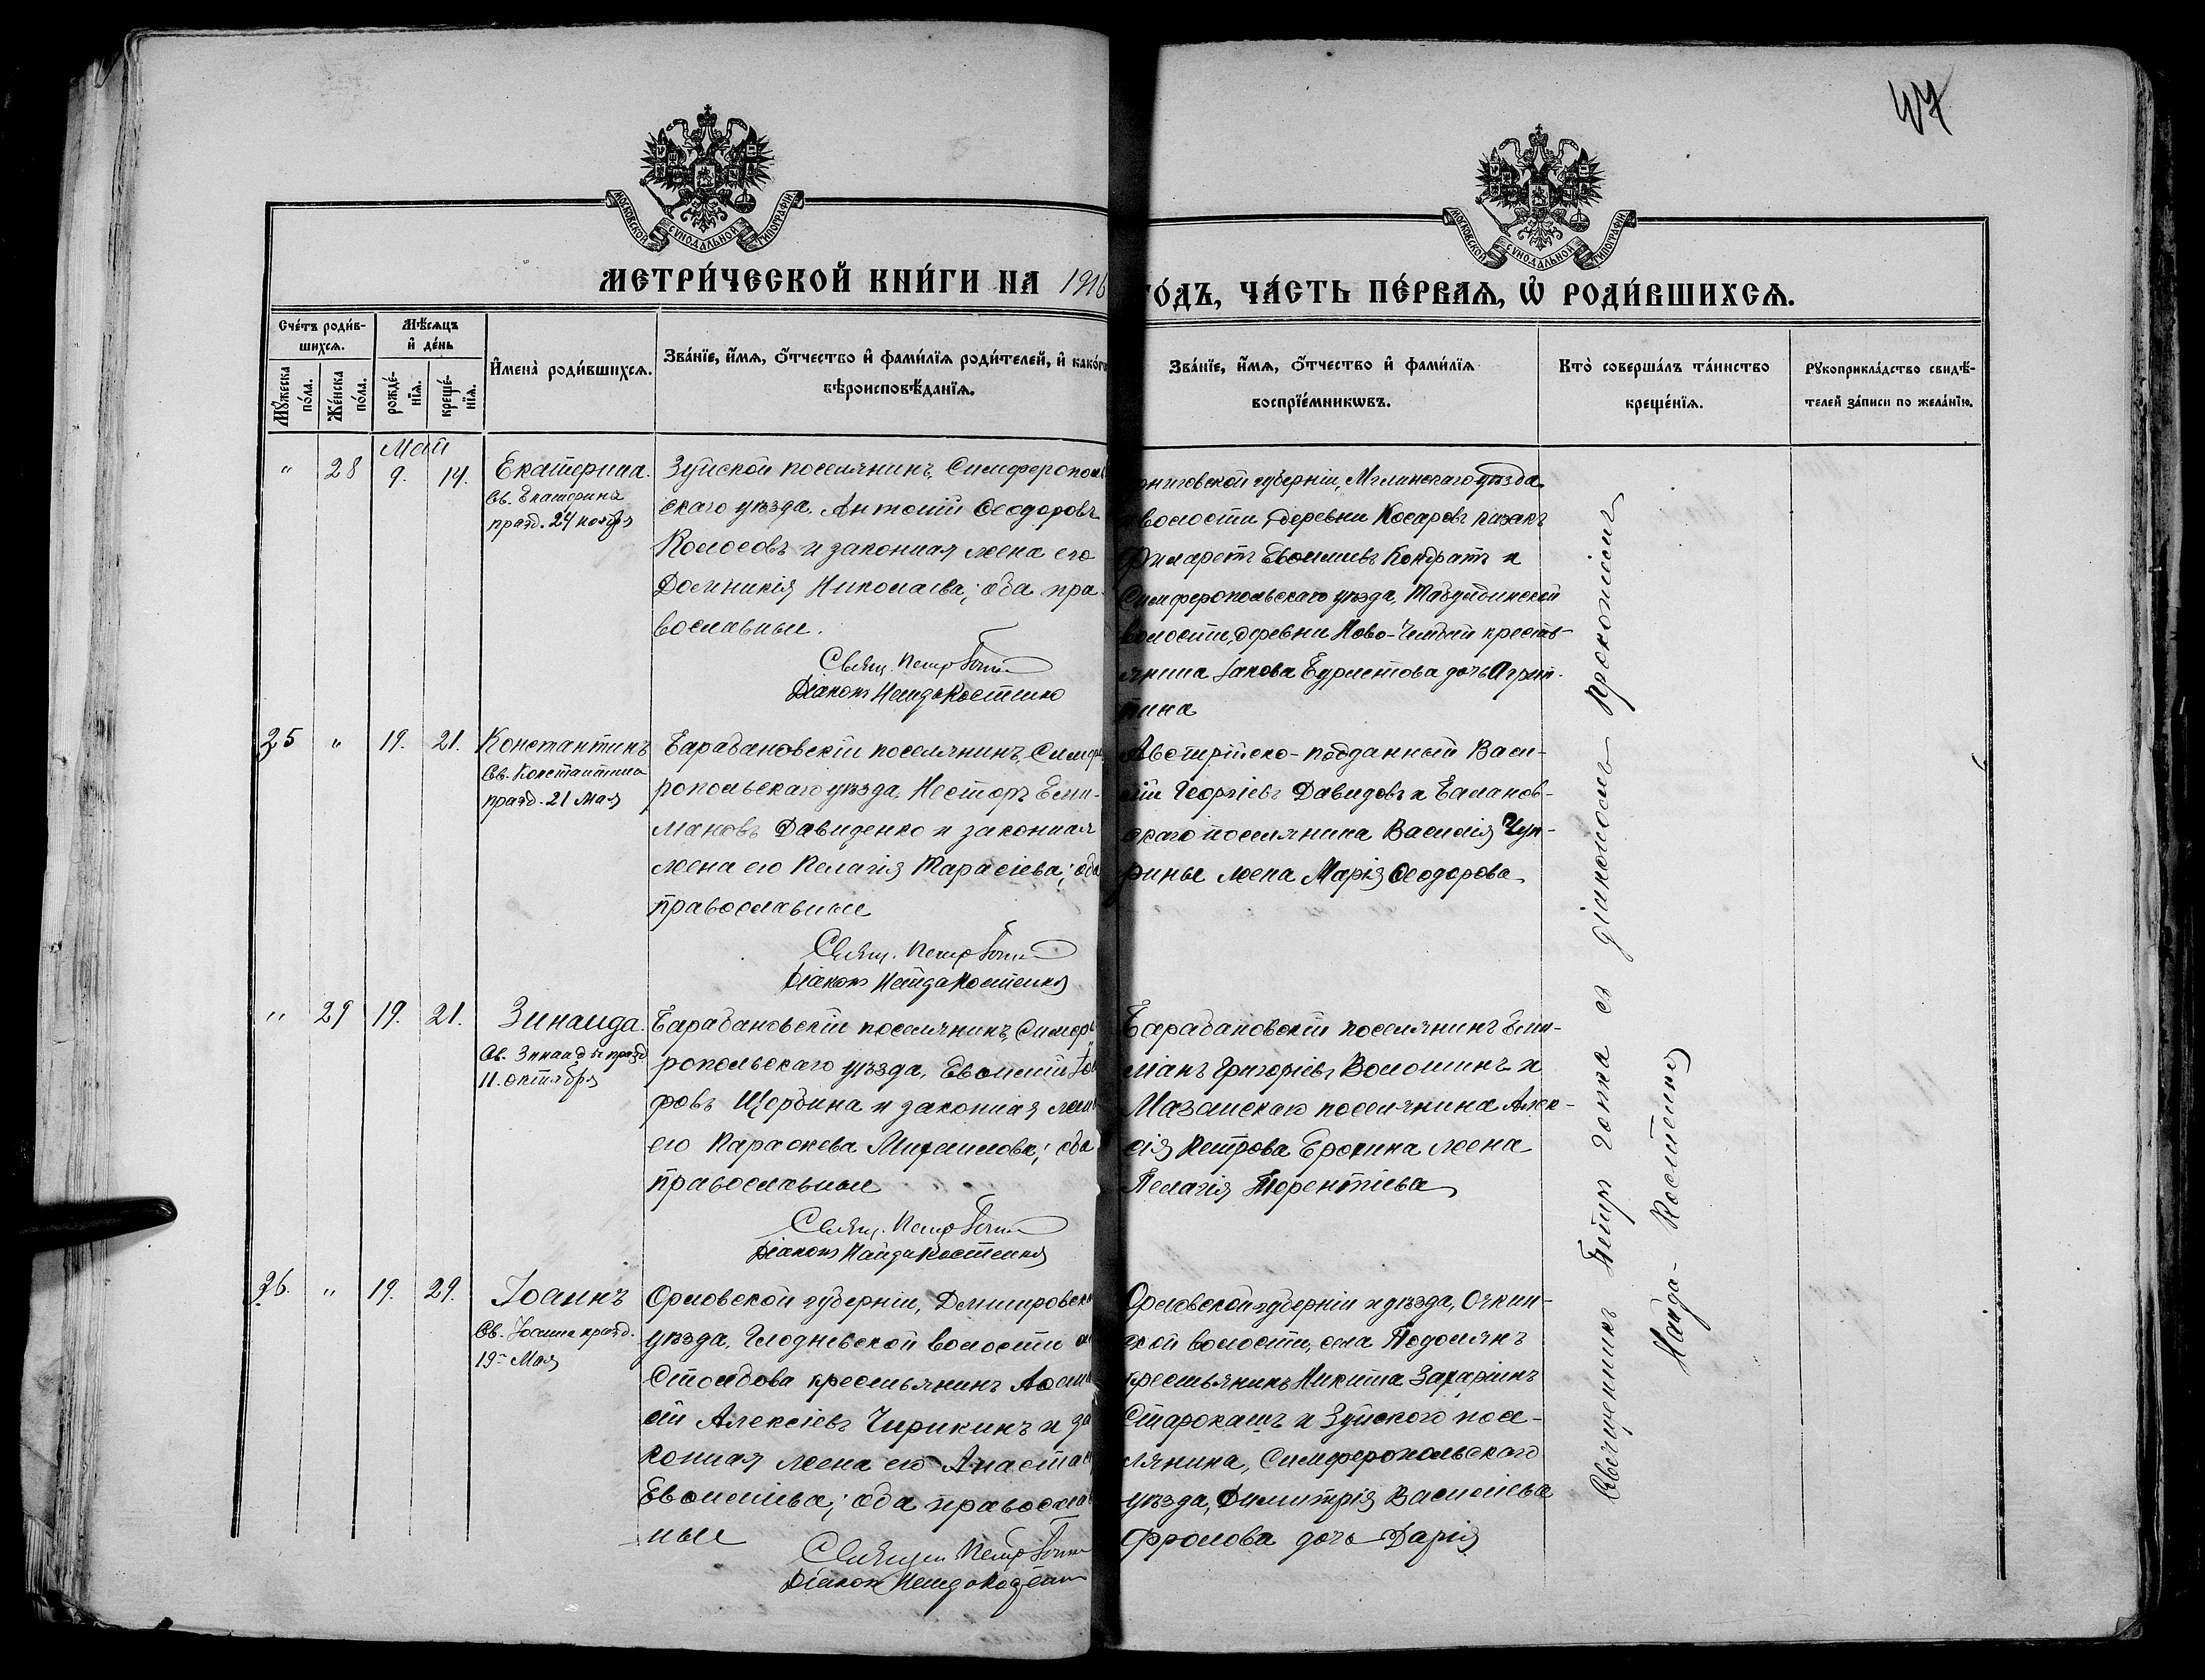 47
МОСКОВСКОЙ СѴНОДАЛЬНОЙ ТИПОГРАФІИ
МОСКОВСКОЙ СѴНОДАЛЬНОЙ ТИПОГРАФІИ
МЕТРИ́ЧЕСКОЙ КНИ́ГИ НА 1916
ГО́ДЪ, ЧА́СТЬ ПЕ́РВАѦ, Ѡ҆ РОДИ́ВШИХСѦ.
Сче́тъ роди́в-
шихсѧ.
Мꙋ́жеска по́ла.
Же́нска по́ла.
Мѣ́сѧцъ
и҆ де́нь
рожде́-
нїѧ.
креще́-
нїѧ.
И҆мена̀ роди́вшихсѧ.
Зва́нїе, и҆́мѧ, ѻ҆́тчество и҆ фами́лїѧ роди́телей, и҆ како́гѡ
вѣроисповѣ́данїѧ.
Зва́нїе, и҆́мѧ, ѻ҆́тчество и҆ фами́лїѧ
воспрїе́мникѡвъ.
Кто̀ соверша́лъ та́инство
креще́нїѧ.
Рꙋкоприкла́дство свидѣ́-
телей за́писи по жела́нїю.
Май
" 28 9. 14. Екатерина.
Св. Екатерина
празд. 24 ноября
Зуйской поселянинъ, Симферополь
скаго уѣзда, Антоній Ѳеодоровъ
Колосовъ и законная жена его
Домникія Николаева; оба пра-
вославные.
Свящ. Петр
Діаконъ Найда Костенко
рниговской губерніи, Мглинскаго уѣзда
волости, деревни Косаровъ казакъ
Филаретъ Евѳиміевъ Кондратъ и
Симферопольскаго уѣзда, Табулдинской
волости, деревни Ново- кресть-
янина Іакова дочь Агрип-
пина
25 " 19. 21. Константинъ
Св. Константина
празд. 21 Мая
Барабановскій поселянинъ, Симфе
ропольскаго уѣзда, Несторъ Еми-
ліановъ Давиденко и законная
жена его Пелагія Тарасіева; оба
православные
Свящ. Петр
Діаконъ Найда Костенко
Австрійско-подданный Васи-
лій Георгіевъ Давидовъ и Баланов-
скаго поселянина Василія Чуп-
рины жена Марія Ѳеодорова
" 29 19. 21. Зинаида.
Св. Зинаиды празд
11. октября
Барабановскій поселянинъ, Симфе
ропольскаго уѣзда, Евѳимій
фовъ Щербина и законная жена
его Параскева Михаилова; оба
православные
Свящ. Петр
Діаконъ Найда Костенко
Барабановскій поселянинъ Еми-
ліанъ Григоріевъ Волошинъ и
Мазанскаго поселянина Алек-
сія Петрова Ерохина жена
Пелагія Терентіева
26. " 19. 29. Іоаннъ
Св. Іоанна празд.
19- Мая
Орловской губерніи, Дмитровск
уѣзда, Глодневской волости
Столбова крестьянинъ
сій Алексіевъ Чирикинъ и за
конная жена его Анастасія
Евѳиміева; оба православ
ные
Священ Петр
Діаконъ Найда Костенко
Орловской губерніи и уѣзда,
ской волости, села Подолянъ
крестьянинъ Никита Захаріинъ
и Зуйского посе-
лянина, Симферопольскаго
уѣзда, Димитрія Василіева
Фролова дочь Дарія
Священникъ Петръ съ діакономъ Прокопіемъ
Найда-Костенко